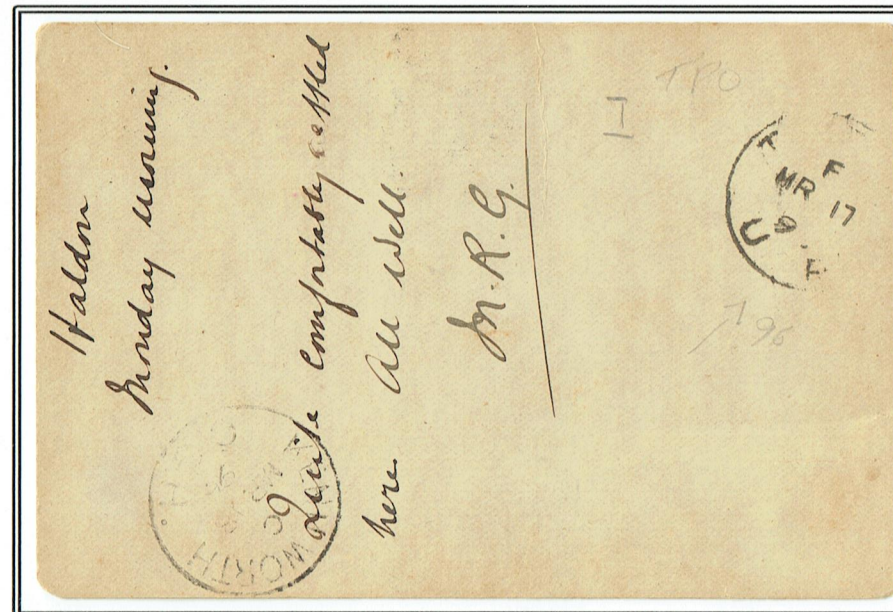 Haldon
Monday morning.
Quite comfortably settled
here. All well.
M. R. G.
TPO
WORTH
MR
17
96